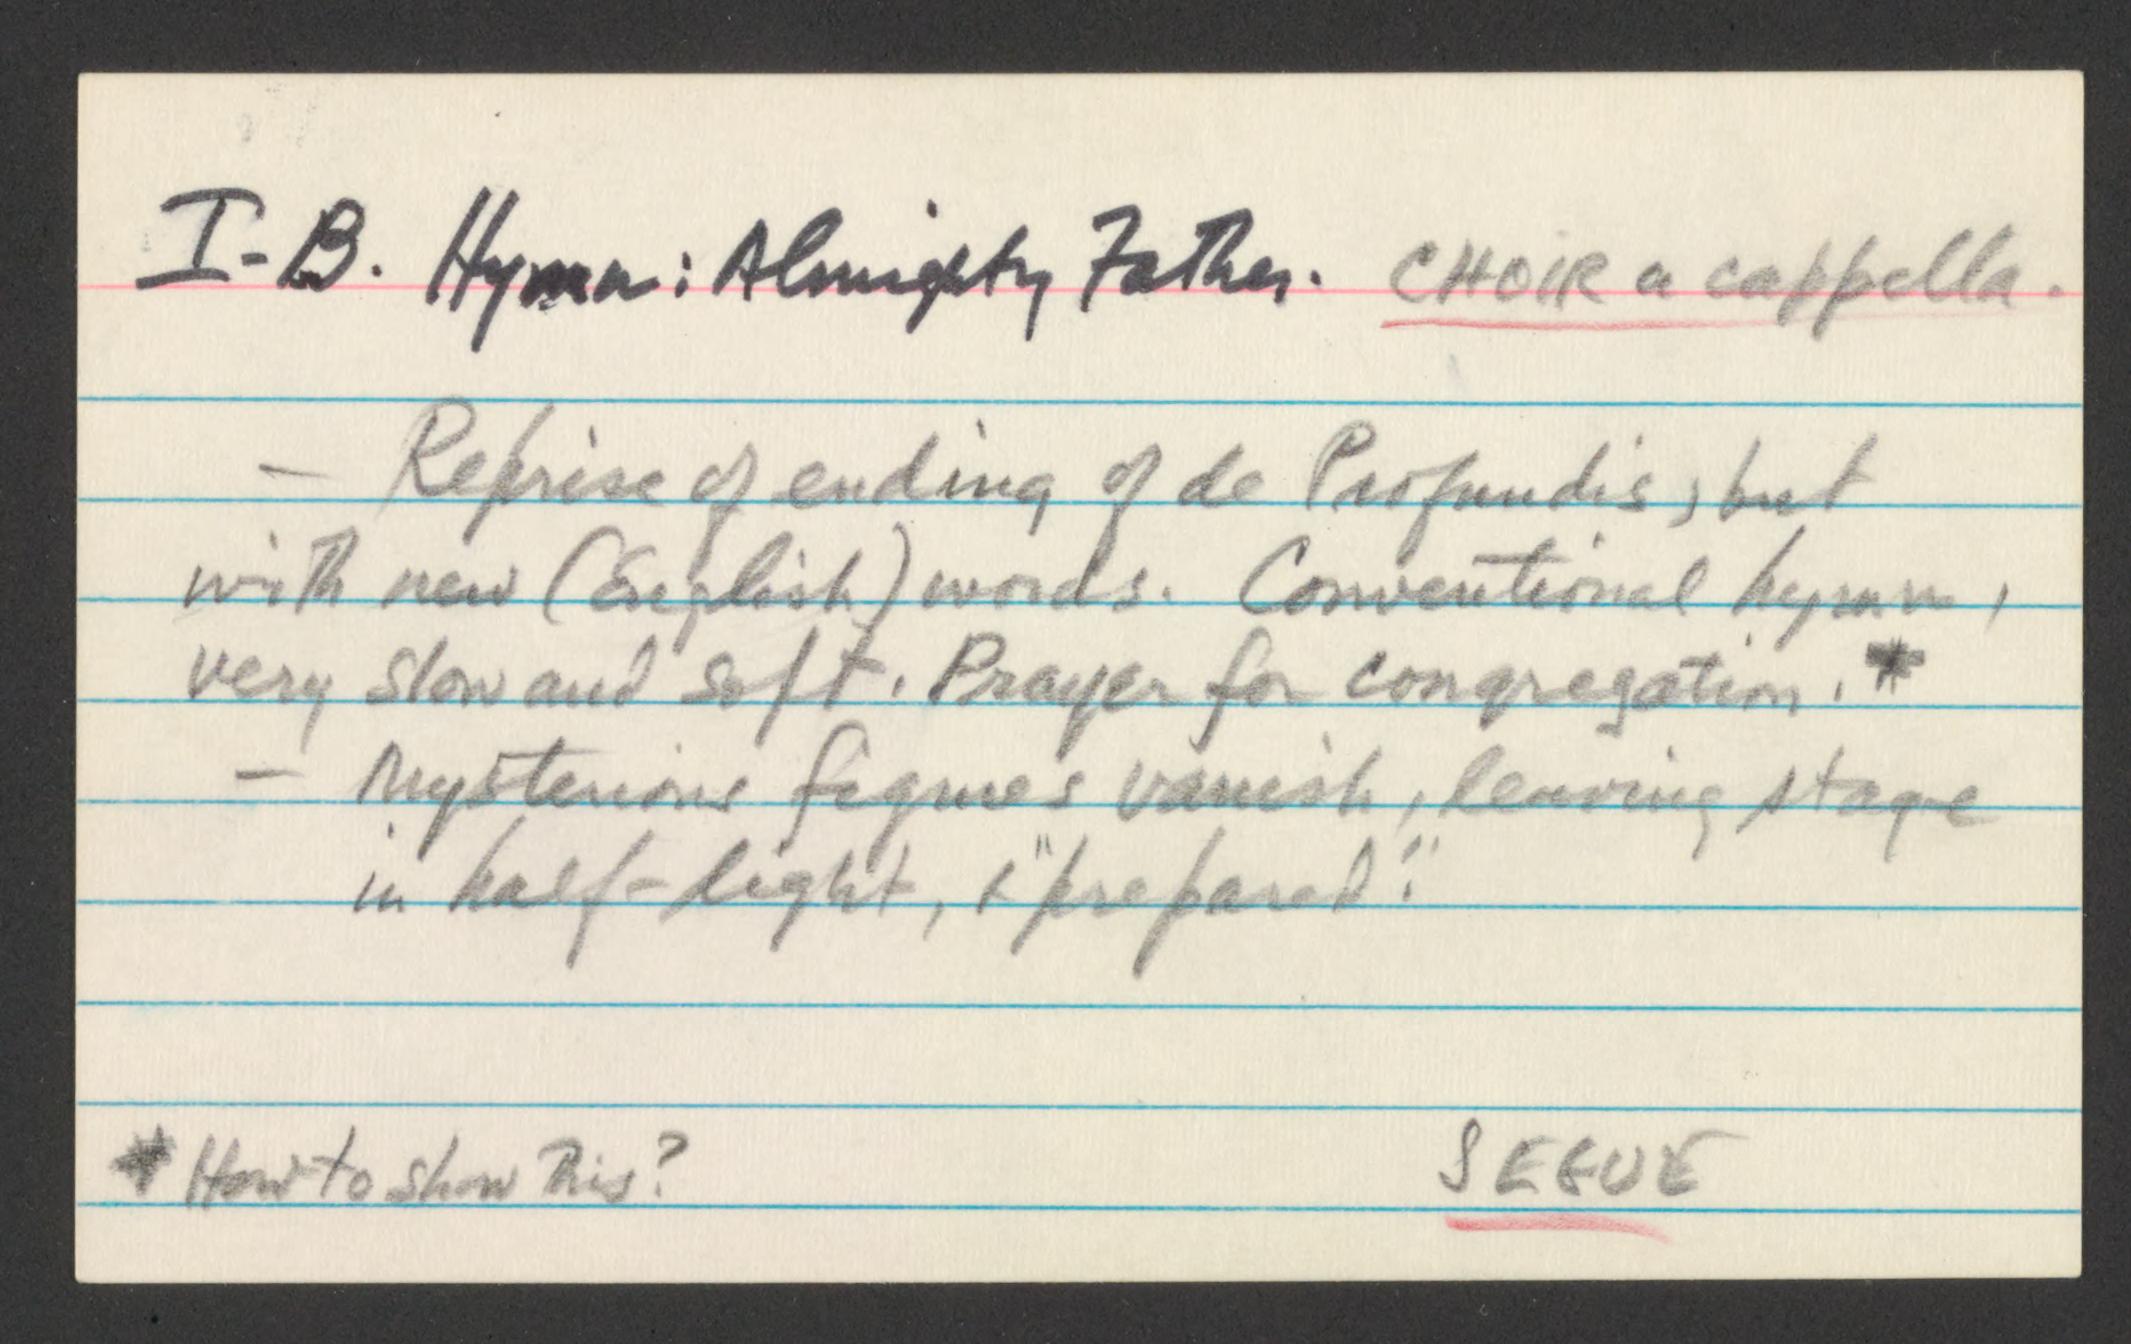 I-B. Hymn: Almighty Father. CHOIR a cappella.
— Reprise of ending of de Profundis, but
with new (English) words. Conventional hymn,
very slow and soft. Prayer for congregation. *
— Mysterious figures vanish, leaving stage
in half-light, & "prepared".
* How to show this?
SEGUE